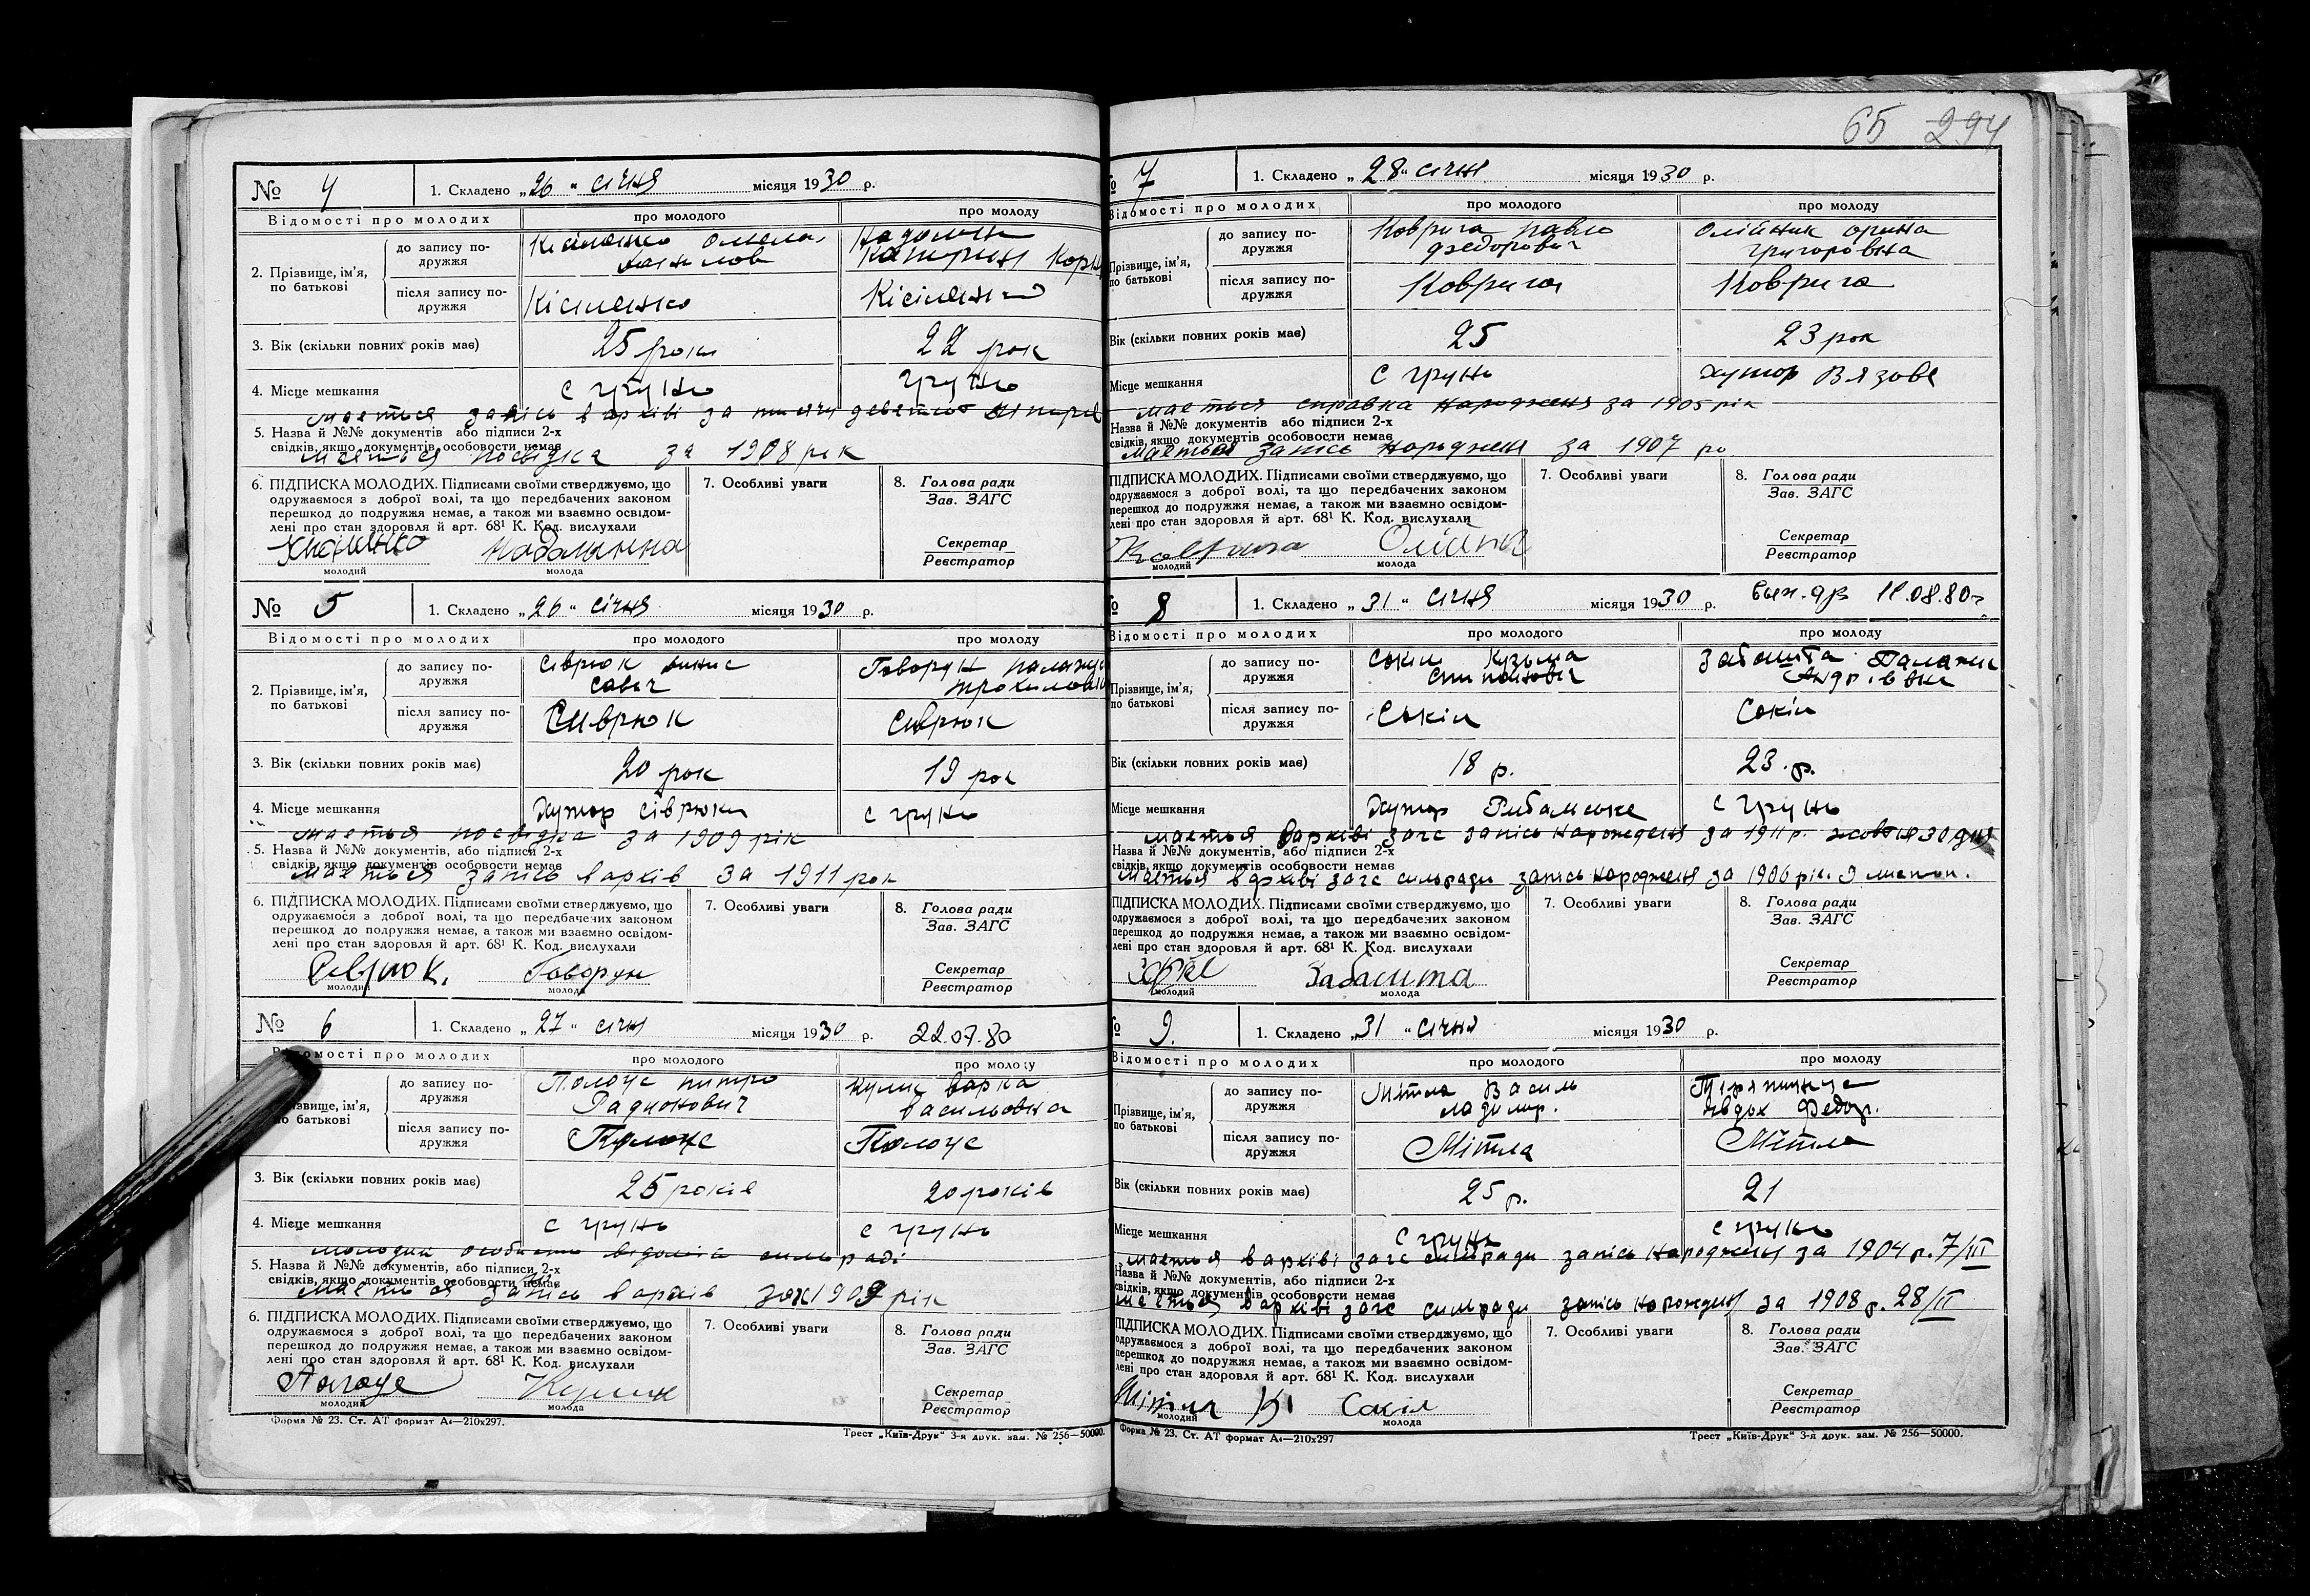 65 294
№ 4
1. Складено „26“ січня місяця 1930 р.
Відомості про молодих
про молодого
про молоду
2. Прізвище, ім'я, по батькові
до запису подружжя
Кісіленко
Надолин
після запису подружжя
Кісіленко
Кісіленко
3. Вік (скільки повних років має)
25 роки
22 рок
4. Місце мешкання
с грунь
грунь
мається запісь в архіві за тисячу девятсот
5. Назва й №№ документів або підписи 2-х
свідків, якщо документів особовости немає
мається посвідка за 1908 рік
6. ПІДПИСКА МОЛОДИХ. Підписами своїми стверджуємо, що
одружаємося з доброї волі, та що передбачених законом
перешкод до подружжя немає, а також ми взаємно освідом-
лені про стан здоровля й арт. 68¹ К. Код. вислухали
молодий
молода
7. Особливі уваги
8. Голова ради
Зав. ЗАГС
Секретар
Реєстратор
№ 5
1. Складено „26“ січня місяця 1930 р.
Відомості про молодих
про молодого
про молоду
2. Прізвище, ім'я, по батькові
до запису подружжя
Сіврюк
Савич
Говорун
після запису подружжя
Сиврюк
Сиврюк
3. Вік (скільки повних років має)
20 рок
19 рок
4. Місце мешкання
Хутор Сіврюки
с грунь
мається посвідка за 1909 рік
5. Назва й №№ документів, або підписи 2-х
свідків, якщо документів особовости немає
мається запісь в архів за 1911 рок
6. ПІДПИСКА МОЛОДИХ. Підписами своїми стверджуємо, що
одружаємося з доброї волі, та що передбачених законом
перешкод до подружжя немає, а також ми взаємно освідом-
лені про стан здоровля й арт. 68¹ К. Код. вислухали
Сиврюк. Говорун
молодий
молода
7. Особливі уваги
8. Голова ради
Зав. ЗАГС
Секретар
Реєстратор
№ 6
1. Складено „27“ січня місяця 1930 р. 22.07.80
Відомості про молодих
про молодого
про молоду
Прізвище, ім'я, по батькові
до запису подружжя
Радионович
Кулик Варка
Васильовна
після запису подружжя
3. Вік (скільки повних років має)
25 років
20 років
4. Місце мешкання
с грунь
с грунь
молодий особисто відоміс сильраді
5. Назва й №№ документів, або підписи 2-х
свідків, якщо документів особовости немає
мається запісь в архів за 1909 рік
6. ПІДПИСКА МОЛОДИХ. Підписами своїми стверджуємо, що
одружаємося з доброї волі, та що передбачених законом
перешкод до подружжя немає, а також ми взаємно освідом-
лені про стан здоровля й арт. 68¹ К. Код. вислухали
Кулик
молодий
молода
7. Особливі уваги
8. Голова ради
Зав. ЗАГС
Секретар
Реєстратор
Форма № 23. Ст. АТ формат А₄—210х297.
Трест „Київ-Друк“ 3-я друк. зам. № 256—50000.
7
1. Складено „28“ січня місяця 1930 р.
Відомості про молодих
про молодого
про молоду
Прізвище, ім'я, по батькові
до запису подружжя
Коврига Павло
Федорович
Олійник Орина
Григоровна
після запису подружжя
Коврига
Коврига
Вік (скільки повних років має)
25
23 рок
Місце мешкання
с грунь
хутор Вязове
мається справка народженя за 1905 рік
Назва й №№ документів або підписи 2-х
свідків, якщо документів особовости немає
мається запісь народженя за 1907 ро
ПІДПИСКА МОЛОДИХ. Підписами своїми стверджуємо, що
одружаємося з доброї волі, та що передбачених законом
перешкод до подружжя немає, а також ми взаємно освідом-
лені про стан здоровля й арт. 68¹ К. Код. вислухали
молодий
молода
7. Особливі уваги
8. Голова ради
Зав. ЗАГС
Секретар
Реєстратор
8
1. Складено „31“ січня місяця 1930 р. 11.08.80г.
Відомості про молодих
про молодого
про молоду
Прізвище, ім'я, по батькові
до запису подружжя
Сокіл Кузьма
Забашта
Андрівна
після запису подружжя
Сокіл
Сокіл
Вік (скільки повних років має)
18 р.
23. р.
Місце мешкання
Хутор
с грунь
мається в архіві загс запісь народженя за 1911 р. жовтня 30 дня
Назва й №№ документів, або підписи 2-х
свідків, якщо документів особовости немає
мається в архіві загс сильради запісь народженя за 1906 рік. 9
ПІДПИСКА МОЛОДИХ. Підписами своїми стверджуємо, що
одружаємося з доброї волі, та що передбачених законом
перешкод до подружжя немає, а також ми взаємно освідом-
лені про стан здоровля й арт. 68¹ К. Код. вислухали
Забашта
молодий
молода
7. Особливі уваги
8. Голова ради
Зав. ЗАГС
Секретар
Реєстратор
9.
1. Складено „31“ січня місяця 1930 р.
Відомості про молодих
про молодого
про молоду
Прізвище, ім'я, по батькові
до запису подружжя
Мітла Василь
Федор.
після запису подружжя
Мітла
Мітла
Вік (скільки повних років має)
25 р.
21
Місце мешкання
с грунь
с грунь
мається в архіві загс сильради запісь народженя за 1904 р. 7/III
Назва й №№ документів, або підписи 2-х
свідків, якщо документів особовости немає
мається в архіві загс сильради запісь народженя за 1908 р. 28/II
ПІДПИСКА МОЛОДИХ. Підписами своїми стверджуємо, що
одружаємося з доброї волі, та що передбачених законом
перешкод до подружжя немає, а також ми взаємно освідом-
лені про стан здоровля й арт. 68¹ К. Код. вислухали
Сокіл
молодий
молода
7. Особливі уваги
8. Голова ради
Зав. ЗАГС
Секретар
Реєстратор
Форма № 23. Ст. АТ формат А₄—210х297
Трест „Київ-Друк“ 3-я друк. зам. № 256—50000.